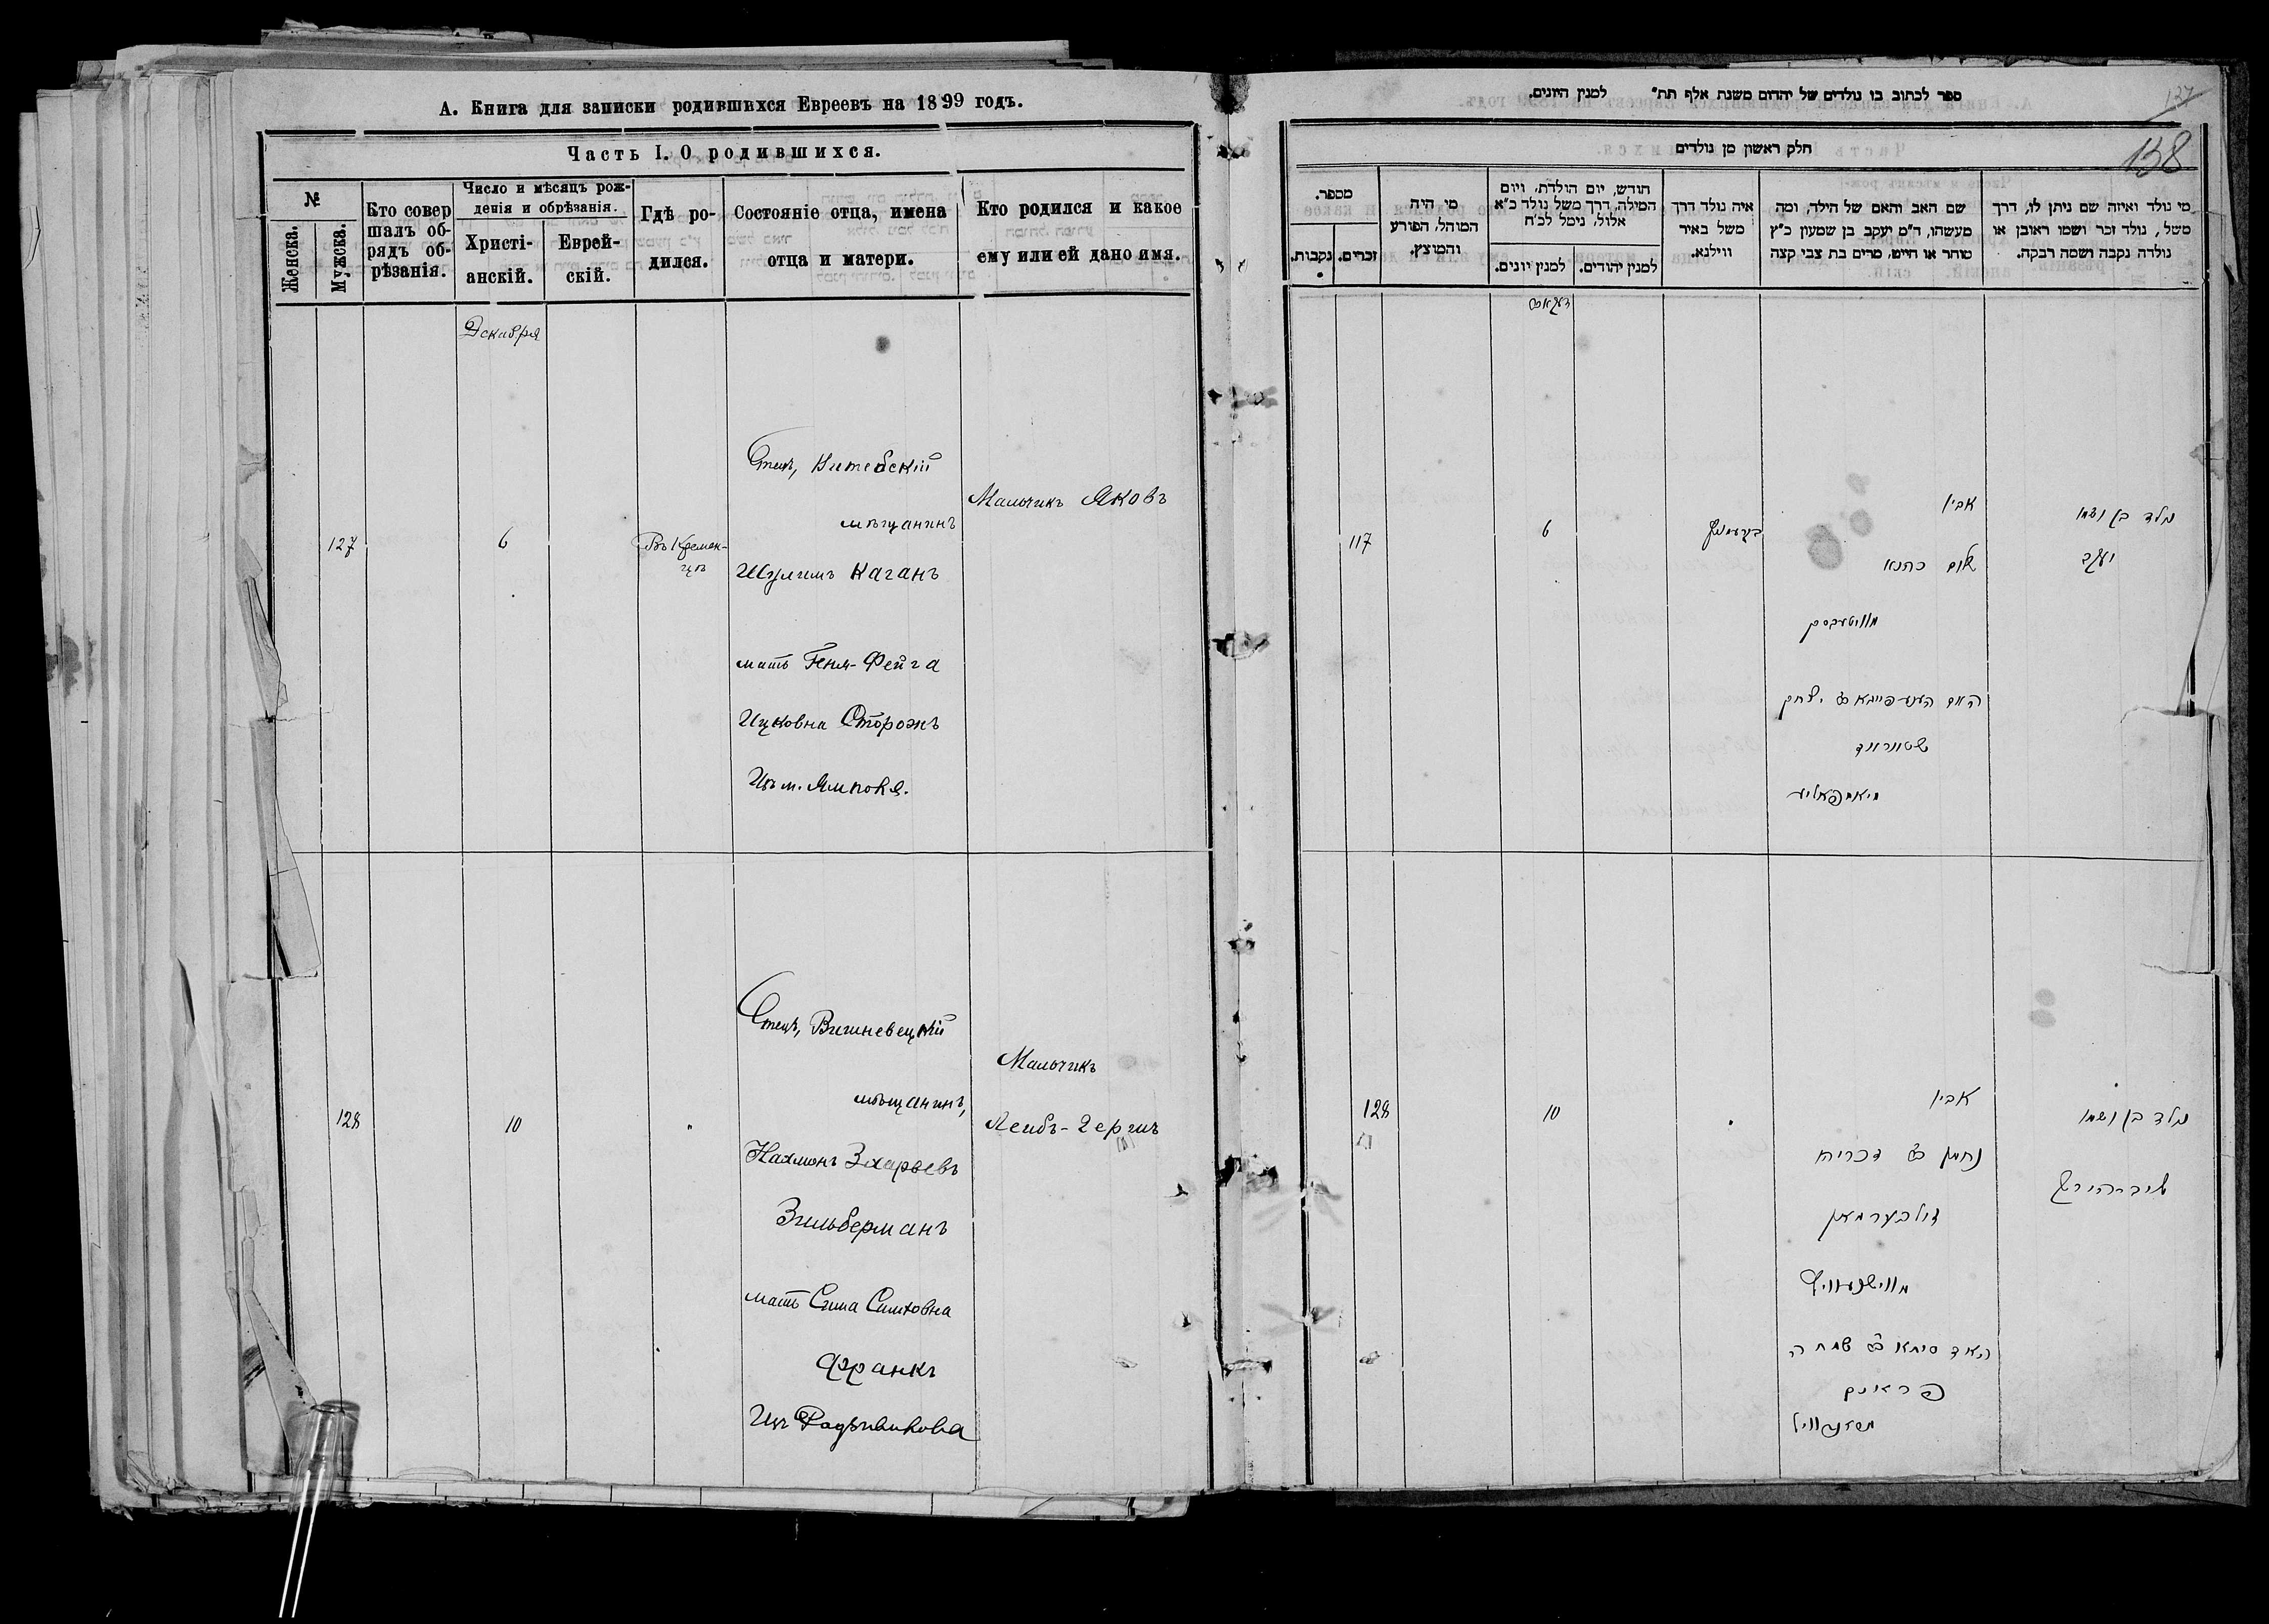 А. Книга для записки родившихся Евреевъ на 1899 годъ.
Часть I. О родившихся.
№
Женска.
Мужска.
Кто совер
шалъ об-
рядъ об-
рѣзанія.
Число и мѣсяцъ рож-
денія и обрѣзанія.
Христі-
анскій.
Еврей-
скій.
Гдѣ ро-
дился.
Состояніе отца, имена
отца и матери.
Кто родился и какое
ему или ей дано имя.
Декабря
127
6
Въ Кремен-
цѣ
Отецъ, Витебскій
мѣщанинъ
Шулимъ Каганъ
мать Геня-Фейга
Ицковна Сторожъ
Изъ м. Ямполя.
Мальчикъ Яковъ
128
10
"
Отецъ, Вишневецкій
мѣщанинъ,
Нахманъ Зхарьевъ
Зильберманъ
мать Сима Симховна
Франкъ
Изъ Радзивилова
Мальчикъ
Лейбъ-Гершъ
ספר לכתוב בו נולדים של יהדום משנת אלף תת" למנין היונים.
127
138
חלק ראשון מן נולדים
מספר.
נקבות.
זכרים.
מי היה
המוהל, הפורע
והמוצץ.
חודש, יום הולדת, ויום
המילה, דרך משל נולד כ"א
אלול, נימל לכ"ח
למנין יונים.
למנין יהודים.
איה נולד דרך
משל באיר
ווילנא.
שם האב והאם של הילד, ומה
מעשהו, ד"מ יעקב בן שמעון כ"ץ
סוחר או חייט, מרים בת צבי קצה
מי נולד ואיזה שם ניתן לו, דרך
משל, נולד זכר ושמו ראובן או
נולדה נקבה ושמה רבקה.
117
6
אביו
שלום כהנא
מוויטעבסק
האם הענע פייגא ב יצחק
שטאראזש
מיאמפאליע
נולד בן ושמו
יעקב
128
10
אביו
נחמן ב זכריה
זילבערמאן
מווישנעוויץ
האם סימא ב שמחה
פראנק
נולד בן ושמו
ליב הירש